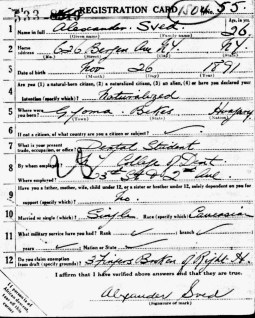 REGISTRATION CARD No. 55.
1 Name in full Alexander Sved Age, in yrs. 26
(Given name) (Family name)
2 Home address 626 Bergen Ave NY. N.Y.
(No.) (Street) (City) (State)
3 Date of birth Nov 26 1891
(Month) (Day) (Year)
4 Are you (1) a natural-born citizen, (2) a naturalized citizen, (3) an alien, (4) or have you declared your
intention (specify which)? Naturalized
5 Where were you born? Gyoma Bekes Hungary
(Town) (State) (Nation)
6 If not a citizen, of what country are you a citizen or subject?
7 What is your present trade, occupation, or office? Dental Student
8 By whom employed? College of Dent.
Where employed?
9 Have you a father, mother, wife, child under 12, or a sister or brother under 12, solely dependent on you for
support (specify which)? no.
10 Married or single (which)? Single Race (specify which)? Caucasian
11 What military service have you had? Rank branch
years Nation or State
12 Do you claim exemption from draft (specify grounds)? 3 Fingers Broken of Right H.
I affirm that I have verified above answers and that they are true.
Alexander Sved
(Signature or mark)